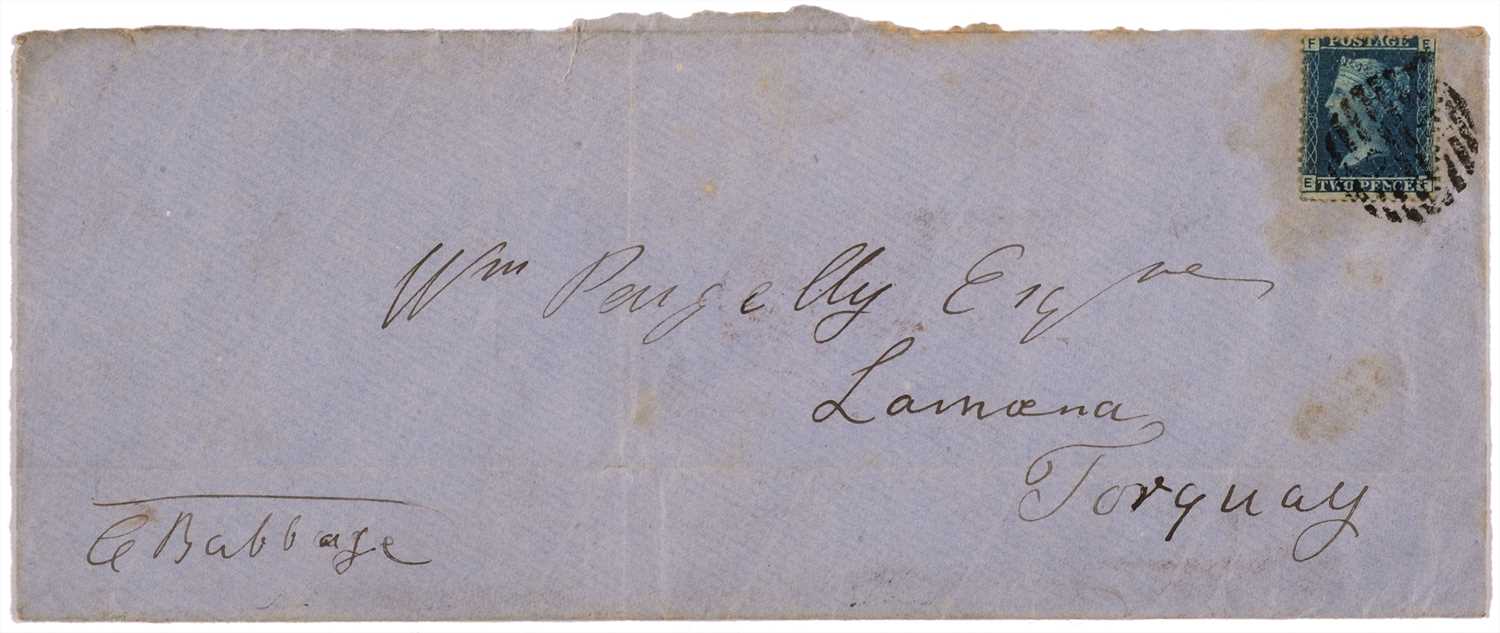 F POSTAGE E
E TWO PENCE F
Wm Pengelly Esqre
Lamorna
Torquay
C Babbage